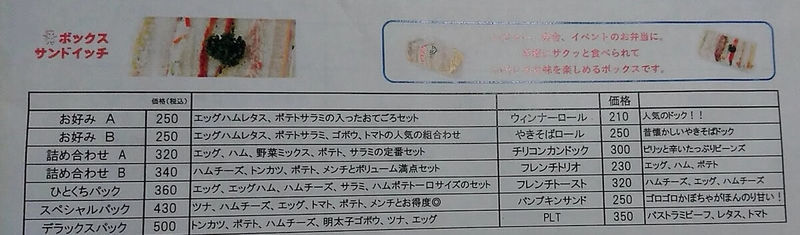 ボックス
サンドイッチ
、イベントのお弁当に。
サクッと食べられて
味を楽しめるボックスです。
価格(税込) 価格
お好み A 250 エッグハムレタス、ポテトサラミの入ったおてごろセット ウィンナーロール 210 人気のドック！！
お好み B 250 エッグハムレタス、ポテトサラミ、ゴボウ、トマトの人気の組合わせ やきそばロール 250 昔懐かしいやきそばドック
詰め合わせ A 320 エッグ、ハム、野菜ミックス、ポテト、サラミの定番セット チリコンカンドック 300 ピリッと辛いたっぷりビーンズ
詰め合わせ B 340 ハムチーズ、トンカツ、ポテト、メンチとボリューム満点セット フレンチトリオ 230 エッグ、ハム、ポテト
ひとくちパック 360 エッグ、エッグハム、ハムチーズ、サラミ、ハムポテト一口サイズのセット フレンチトースト 320 ハムチーズ、エッグ、ハムチーズ
スペシャルパック 430 ツナ、ハムチーズ、エッグ、トマト、ポテト、メンチとお得度◎ パンプキンサンド 250 ゴロゴロかぼちゃがほんのり甘い！
デラックスパック 500 トンカツ、ポテト、ハムチーズ、明太子ゴボウ、ツナ、エッグ PLT 350 パストラミビーフ、レタス、トマト